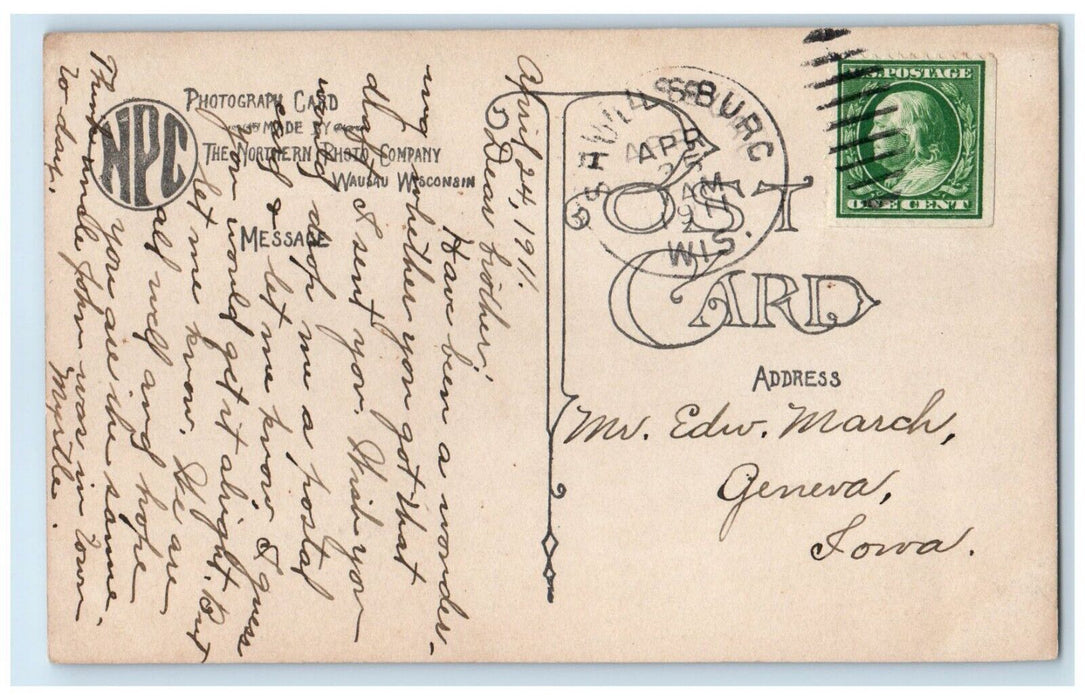 PHOTOGRAPH CARD
MADE BY
THE NORTHERN PHOTO COMPANY
WAUSAU WISCONSIN
NPC
MESSAGE
April 24, 1911.
Dear brother;
Have been a wonder-
ing whether you got that
I sent you. Wish you
would drop me a postal
card & let me know. I guess
you would get it alright. But
let me know. We are
all well and hope
you are the same.
Think uncle John was in town
to-day. Myrtle.
POST
CARD
SHULLSBURG
APR
25
AM
1911
WIS.
U.S. POSTAGE
ONE CENT
ADDRESS
Mr. Edw. March,
Geneva,
Iowa.